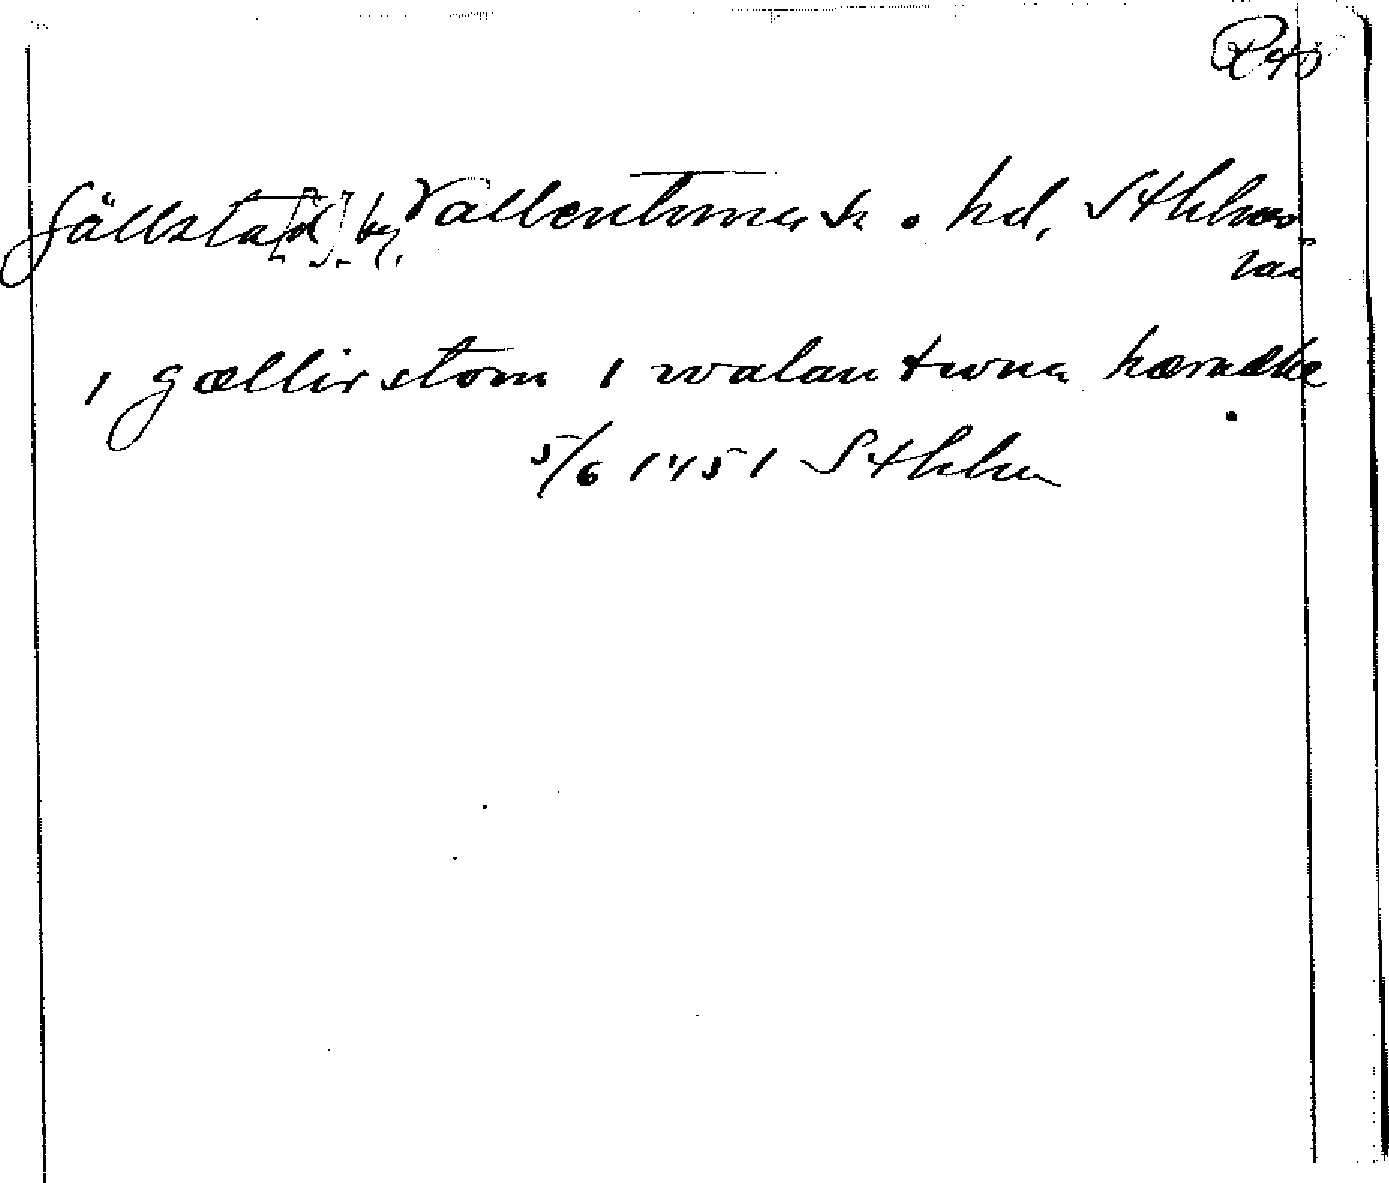 Gällsta[d], by, Vallentuna sn o. hd, Sthlms
län
i gællirstom i walantuna hæradhe
5/6 1451 Sthlm